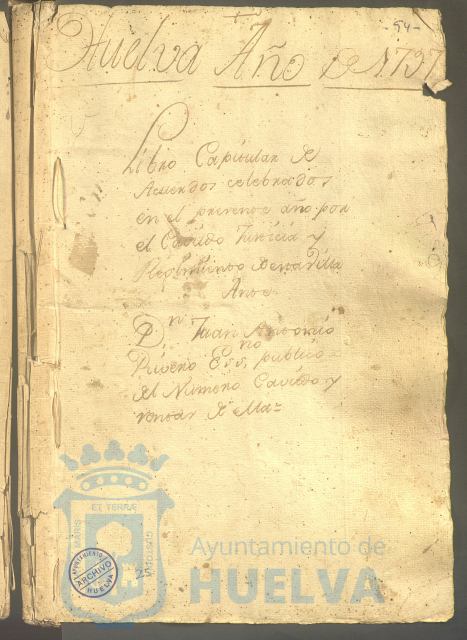 -54-
Huelva Año de 1737
Libro Capitular de
Acuerdos celebrados
en el presente año por
el Cavildo Justicia y
Regimiento de esta Villa
Ante
Dn Juan Antonio
Essno publico
del Numero Cavildo y
rentas de ella=
ET TERRÆ
MARIS
CUSTODIA
AYUNTAMIENTO
ARCHIVO
HUELVA
Ayuntamiento de
HUELVA